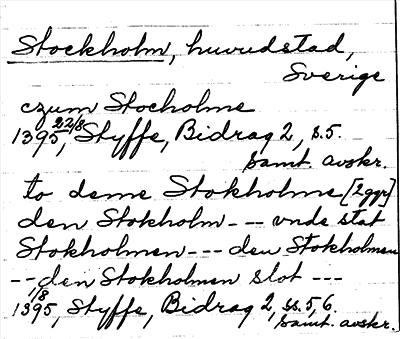 Stockholm, huvudstad,
Sverige
czum Stocholme
1395 22/8, Styffe, Bidrag 2, s. 5.
samt. avskr.
to deme Stokholme [2ggr]
den Stokholm --- vnde stat
Stokholmen --- den Stokholmen
-- den Stokholmen slot ---
1395 1/8, Styffe, Bidrag 2, ss. 5, 6
samt. avskr.